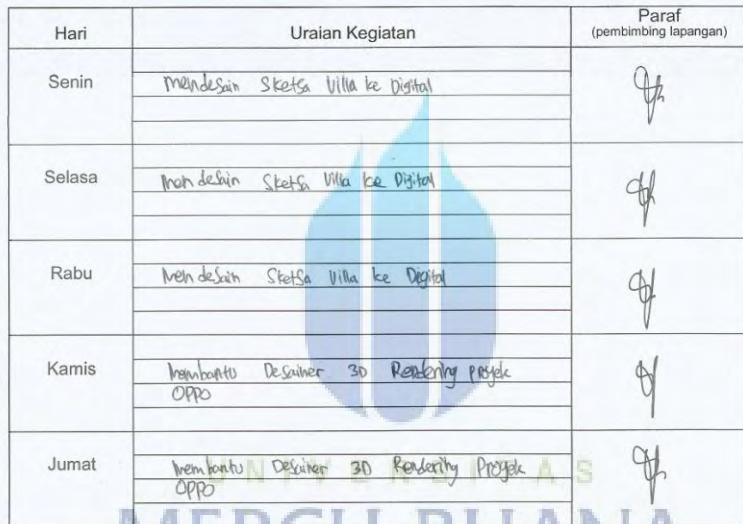 Hari Uraian Kegiatan Paraf
(pembimbing lapangan)
Senin Mendesain Sketsa Villa ke Digital
Selasa Mendesain Sketsa Villa ke Digital
Rabu Mendesain Sketsa Villa ke Degital
Kamis Membantu Desainer 3D Rendering proyek
OPPO
Jumat Membantu Desainer 3D Rendering Proyek
OPPO
UNIVERSITAS
MERCU BUANA